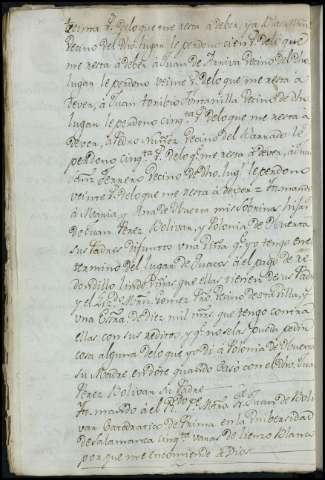 treinta rs. de lo que me resta a dever, ya Blas
Vecino del Dho. lugar le perdono cien rs. de lo que
me resta a dever, a Juan de Arriva Vecino del Dho.
lugar le perdono veinte rs. de lo que me resta a
dever, a Juan toribio Fontanilla Vecino de dho
lugar le perdono cinqta. rs. de lo que me resta a
Dever, a Pedro Nuñez Vecino del le
perdono cinqta. rs. de lo q. me resta a dever, a
Herrero Vecino de Dho. lugr. le perdono
veinte rs. de lo que me resta a dever = Yt. mando
a Maria, y Ana de Huerta mis sobrinas hijas
de Juan Perez Bolivar, y Polonia de Huerta
sus Padres difuntos una Viña q. yo tengo en el
termino del lugar de Quacos al pago de
dondillo linde viñas que ellas tienen de sus Padres
y el Lizdo. Martin Gomez Vecino desta Villa, y
una Escra. de Diez mil mrs. que tengo contra
ellas con sus reditos, y q. no se las pueda pedir
cosa alguna de lo que yo di a Polonia de Huerta
su Madre en dote quando Casó con el dho. Juan
Perez Bolivar su Padre
Yt. mando a el Pe. Mtro. fr. Juan de Boli
var Catedratico de Prima en la Universidad
de Salamanca cinqta. varas de lienzo Blanco
por que me encomiende a Dios